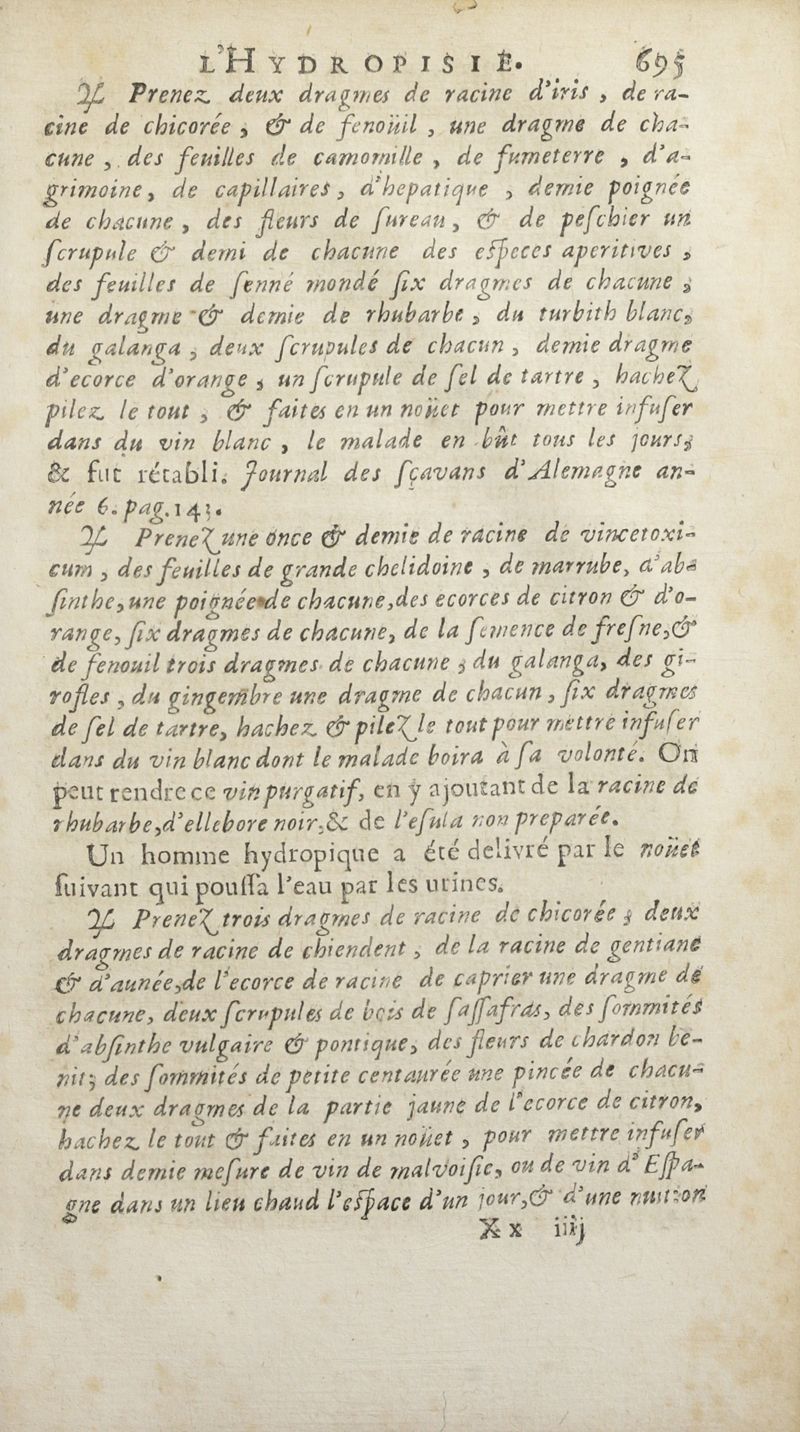 L'HYDROPISIE. 695
℞ Prenez deux dragmes de racine d'iris, de ra-
cine de chicorée, & de fenoüil, une dragme de cha-
cune, des feuilles de camomille, de fumeterre, d'a-
grimoine, de capillaires, d'hepatique, demie poignée
de chacune, des fleurs de ſureau, & de peſchier un
ſcrupule & demi de chacune des eſpeces aperitives,
des feuilles de ſenné mondé ſix dragmes de chacune;
une dragme & demie de rhubarbe, du turbith blanc,
du galanga; deux ſcrupules de chacun, demie dragme
d'ecorce d'orange; un ſcrupule de ſel de tartre, hachez,
pilez le tout, & faites en un noüet pour mettre infuſer
dans du vin blanc, le malade en bût tous les jours;
& fut rétabli. Journal des ſçavans d'Alemagne an-
née 6. pag. 143.
℞ Prenez une once & demie de racine de vincetoxi-
cum, des feuilles de grande chelidoine, de marrube, d'ab-
ſinthe, une poignée de chacune, des ecorces de citron & d'o-
range, ſix dragmes de chacune, de la ſemence de freſne, &
de fenouil trois dragmes de chacune; du galanga, des gi-
rofles, du gingembre une dragme de chacun, ſix dragmes
de ſel de tartre, hachez & pilez le tout pour mettre infuſer
dans du vin blanc dont le malade boira à ſa volonté. On
peut rendre ce vin purgatif, en y ajoutant de la racine de
rhubarbe, d'ellebore noir, & de l'eſula non preparée.
Un homme hydropique a été delivré par le noüet
ſuivant qui pouſſa l'eau par les urines.
℞ Prenez trois dragmes de racine de chicorée; deux
dragmes de racine de chiendent, de la racine de gentiane
& d'aunée, de l'ecorce de racine de caprier une dragme de
chacune, deux ſcrupules de bois de ſaſſafras, des ſommités
d'abſinthe vulgaire & pontique, des fleurs de chardon be-
nit; des ſommités de petite centaurée une pincée de chacu-
ne deux dragmes de la partie jaune de l'ecorce de citron,
hachez le tout & faites en un noüet, pour mettre infuſer
dans demie meſure de vin de malvoiſie, ou de vin d'Eſpa-
gne dans un lieu chaud l'eſpace d'un jour, & d'une nuit: on
Xx iiij